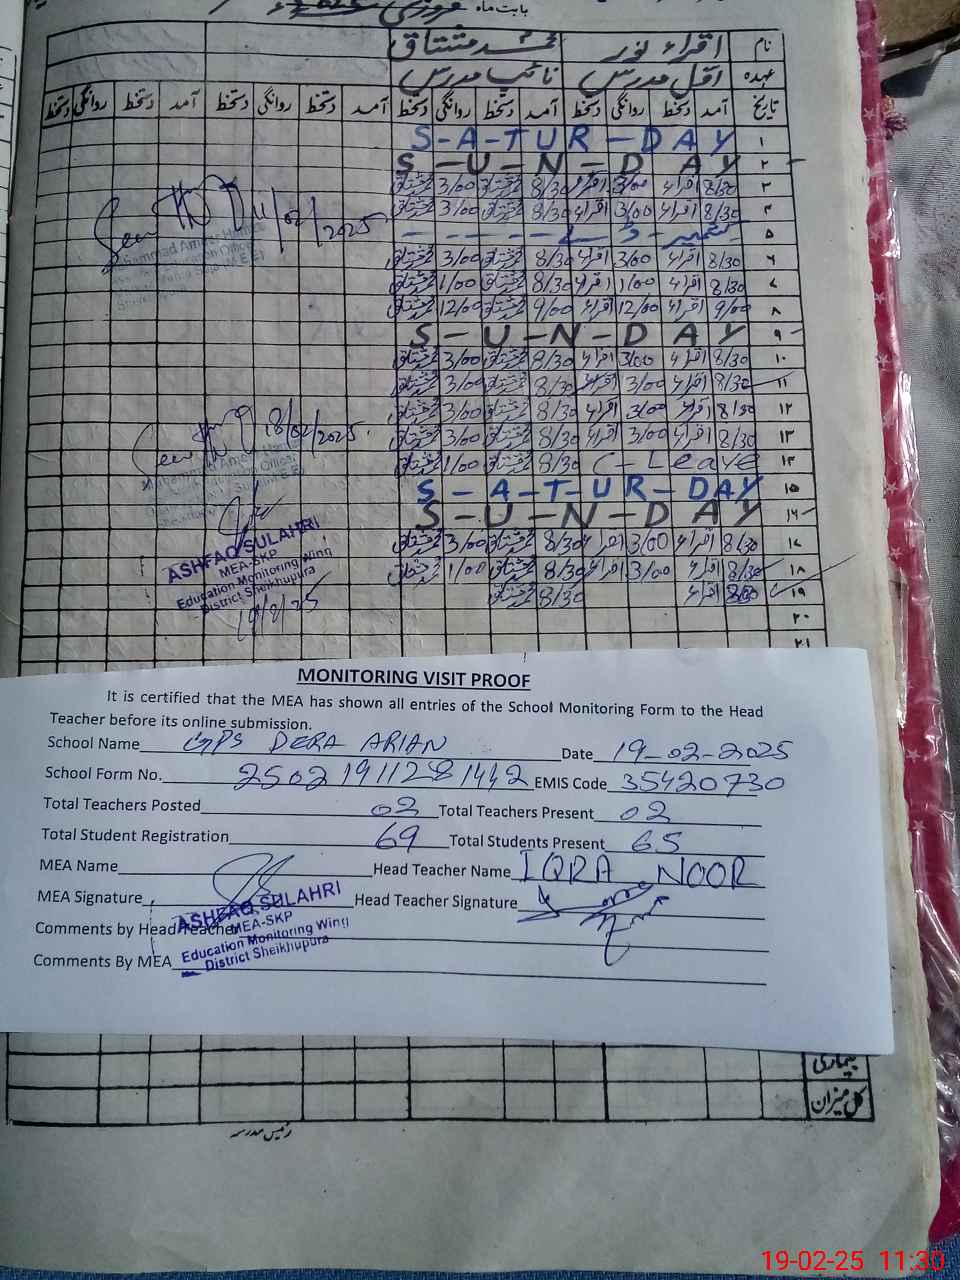 بابت ماہ فروری
نام اقراء نور محمد مشتاق
عہدہ اول مدرس نائب مدرس
تاریخ آمد دستخط روانگی دستخط آمد دستخط روانگی دستخط آمد دستخط روانگی دستخط آمد دستخط روانگی دستخط
۱ S-A-TUR-DAY
۲ S-U-N-DAY
۳ 8/30 اقراء 3/00 اقراء 8/30 مشتاق 3/00 مشتاق
۴ 8/30 اقراء 3/00 اقراء 8/30 مشتاق 3/00 مشتاق
۵ کشمیر - ڈے
۶ 8/30 اقراء 3/00 اقراء 8/30 مشتاق 3/00 مشتاق
۷ 8/30 اقراء 1/00 اقراء 8/30 مشتاق 1/00 مشتاق
۸ 9/00 اقراء 12/00 اقراء 9/00 مشتاق 12/00 مشتاق
۹ S-U-N-DAY
۱۰ 8/30 اقراء 3/00 اقراء 8/30 مشتاق 3/00 مشتاق
۱۱ 8/30 اقراء 3/00 اقراء 8/30 مشتاق 3/00 مشتاق
۱۲ 8/30 اقراء 3/00 اقراء 8/30 مشتاق 3/00 مشتاق
۱۳ 8/30 اقراء 3/00 اقراء 8/30 مشتاق 3/00 مشتاق
۱۴ C-Leave 8/30 مشتاق 1/00 مشتاق
۱۵ S-A-T-UR-DAY
۱۶ S-U-N-DAY
۱۷ 8/30 اقراء 3/00 اقراء 8/30 مشتاق 3/00 مشتاق
۱۸ 8/30 اقراء 3/00 اقراء 8/30 مشتاق 1/00 مشتاق
۱۹ 8/30 اقراء 8/30 مشتاق
۲۰
۲۱
Seen 11/02/2025
Seen 18/02/2025
ASHFAQ SULAHRI
MEA-SKP
Education Monitoring Wing
District Sheikhupura
19/8/25
MONITORING VISIT PROOF
It is certified that the MEA has shown all entries of the School Monitoring Form to the Head
Teacher before its online submission.
School Name GPS DERA ARIAN Date 19-02-2025
School Form No. 25021911281442 EMIS Code 35420730
Total Teachers Posted 02 Total Teachers Present 02
Total Student Registration 69 Total Students Present 65
MEA Name Head Teacher Name IQRA NOOR
MEA Signature Head Teacher Signature
Comments by Head Teacher
Comments By MEA
ASHFAQ SULAHRI
MEA-SKP
Education Monitoring Wing
District Sheikhupura
بیماری
کل میزان
رئیس مدرسہ
19-02-25 11:30